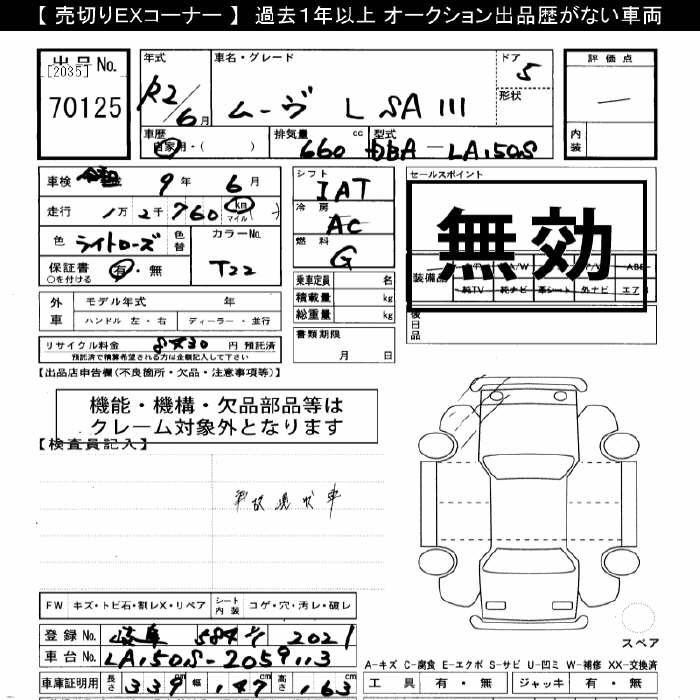 【 売切りEXコーナー 】 過去１年以上 オークション出品歴がない車両
出品No.
[2035]
70125
年式
R2/6月
車名・グレード
ムーヴ L SAIII
ドア
5
形状
評価点
―
内装
車歴
自家用・( )
排気量
660 cc
型式
DBA-LA150S
車検 9年 6月
走行 1万2千760 km マイル ( )
色 ライトローズ 色替
カラーNo.
T22
保証書 有・無
○を付ける
シフト
IAT
冷房
AC
燃料
G
セールスポイント
無効
装備品
純TV 純ナビ 革シート 外ナビ エアB
後日品
乗車定員 名
積載量 kg
総重量 kg
書類期限
月 日
外車
モデル年式 年
ハンドル 左・右 ディーラー・並行
リサイクル料金 円 預託済
預託済で積算希望される方は金額記入して下さい
【出品店申告欄(不良箇所・欠品・注意事項等)】
機能・機構・欠品部品等は
クレーム対象外となります
【検査員記入】
事故現状車
FW キズ・トビ石・割レX・リペア シート内装 コゲ・穴・汚レ・破レ
登録No. 岐阜 2021
車台No. LA150S-2059113
車庫証明用 長さ 339 cm 幅 147 cm 高さ 163 cm
スペア
A-キズ C-腐食 E-エクボ S-サビ U-凹ミ W-補修 XX-交換済
工具 有・無 ジャッキ 有・無